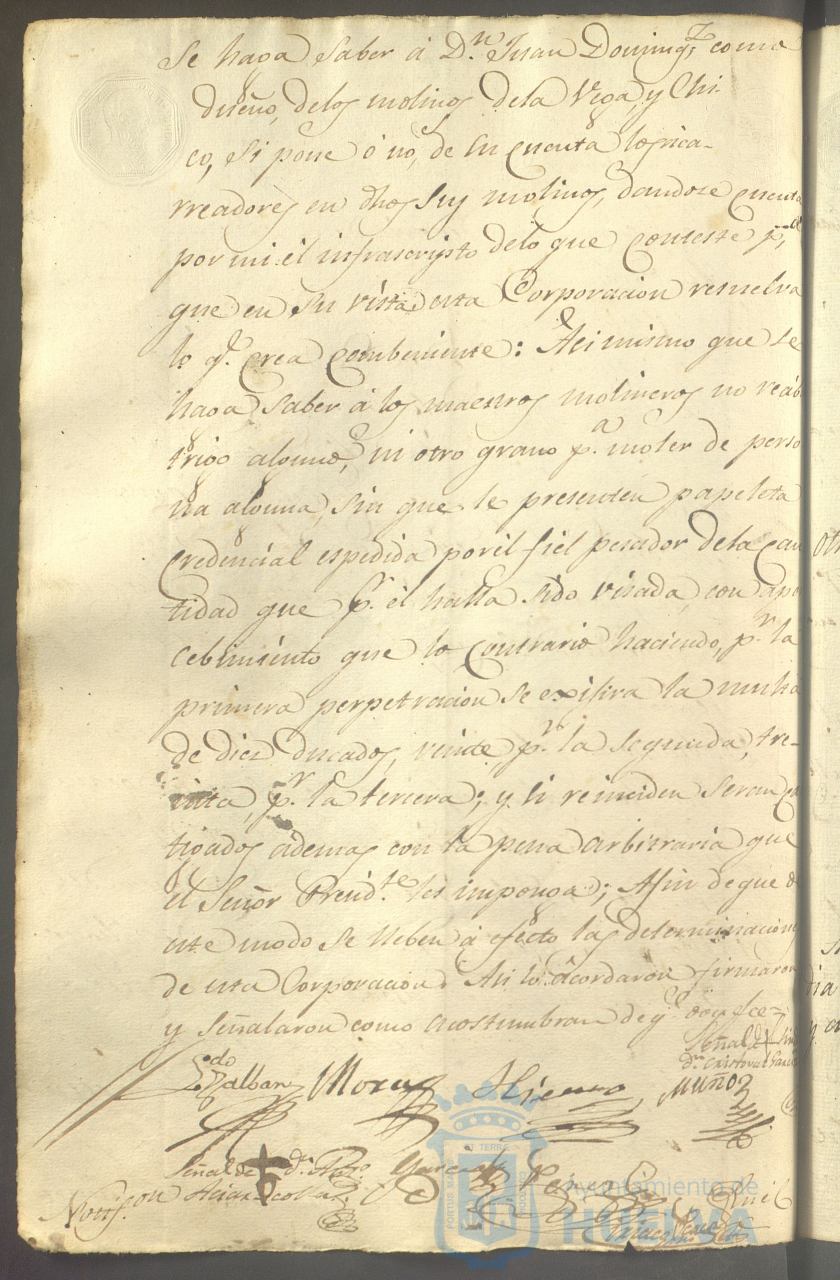 Se haga saber á D.n Juan Doming.z como
dueño, delos molinos dela Vega, y Chi-
co, si pone ó no, de su cuenta los rica-
rreadores en dhos sus molinos, dandose cuenta
por mi el infrascripto delo que conteste p.a
que en su vista esta Corporacion resuelva
lo q.e crea combeniente: Asimismo que se
haga saber á los maestros molineros no reciban
trigo alguno, ni otro grano p.a moler de perso
na alguna, sin que le presenten papeleta
credencial espedida por el fiel pesador dela can
tidad que p.r el halla sido visada, con aper
cebimiento que lo contrario haciendo, p.r la
primera perpetracion se exijira la multa
de diez ducados, veinte, p.r la segunda, tre-
inta, p.r la tercera; y si reinciden seran cas
tigados ademas con la pena arbitraria que
el Señor Presid.te les imponga; Afin de que de
este modo se lleben á efecto las determinacion
de esta Corporacion Asi lo acordaron firmaron
y señalaron como acostumbran de q.e doy fee=
Señal de
d.n Cristoval Garcia
Moru Hierro, Muñoz
Señal de d.n
Garcia
Ayuntamiento de
HUELVA
PORTUS MARIS
TERRAE CUSTODIA